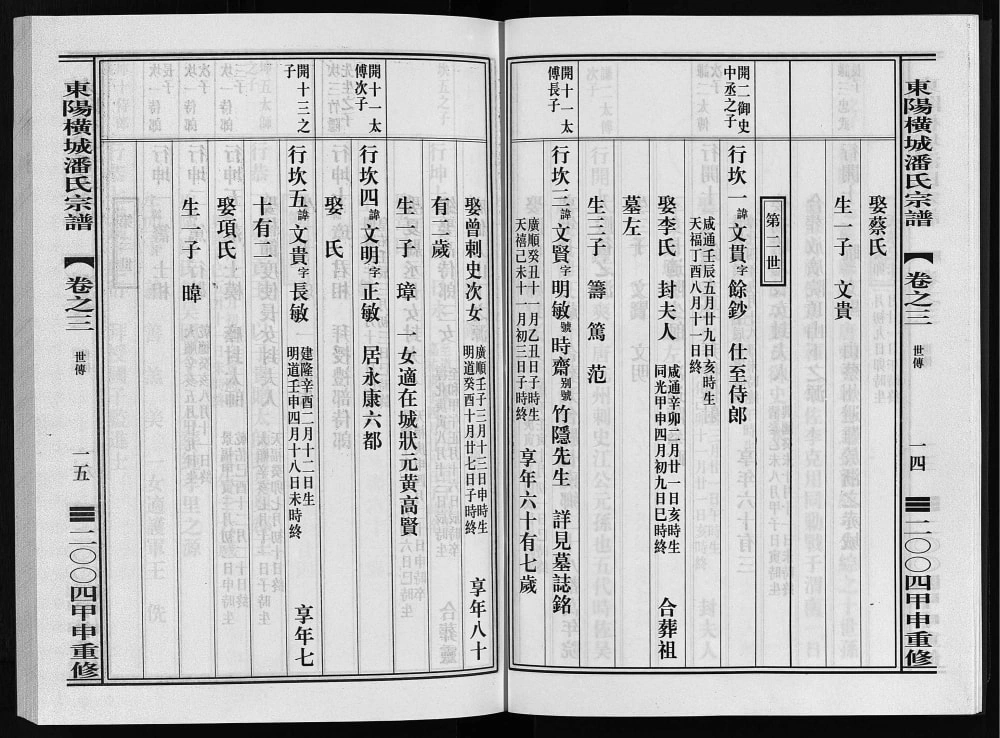 東陽橫城潘氏宗譜 【卷之三 世傳 一四 二〇〇四甲申重修
娶蔡氏
生一子 文貫
第二世
開二御史
中丞之子
行坎一 諱文貫 字餘鈔 仕至侍郎
咸通壬辰五月廿九日亥時生
天福丁酉八月十一日終
娶李氏 封夫人
咸通辛卯二月廿一日亥時生
同光甲申四月初九日巳時終
合葬祖
墓左
生三子 籌 篤 范
開十一太
傅長子
行坎三 諱文賢 字明敏 號時齋 别號竹隱先生 詳見墓誌銘
廣順癸丑十一月乙丑日子時生
天禧己未十一月初三日子時終
享年六十有七歲
娶曾刺史次女
廣順壬子三月十三日申時生
明道癸酉十月廿七日子時終
享年八十
有一歲
生一子 璋 一女適在城狀元黄高賢
開十一太
傅次子
行坎四 諱文明 字正敏 居永康六都
娶 氏
開十三之
子
行坎五 諱文貴 字長敏
建隆辛酉二月十二日生
明道壬申四月十八日未時終
享年七
十有二
娶項氏
生一子 暐
東陽橫城潘氏宗譜 【卷之三 世傳 一五 二〇〇四甲申重修